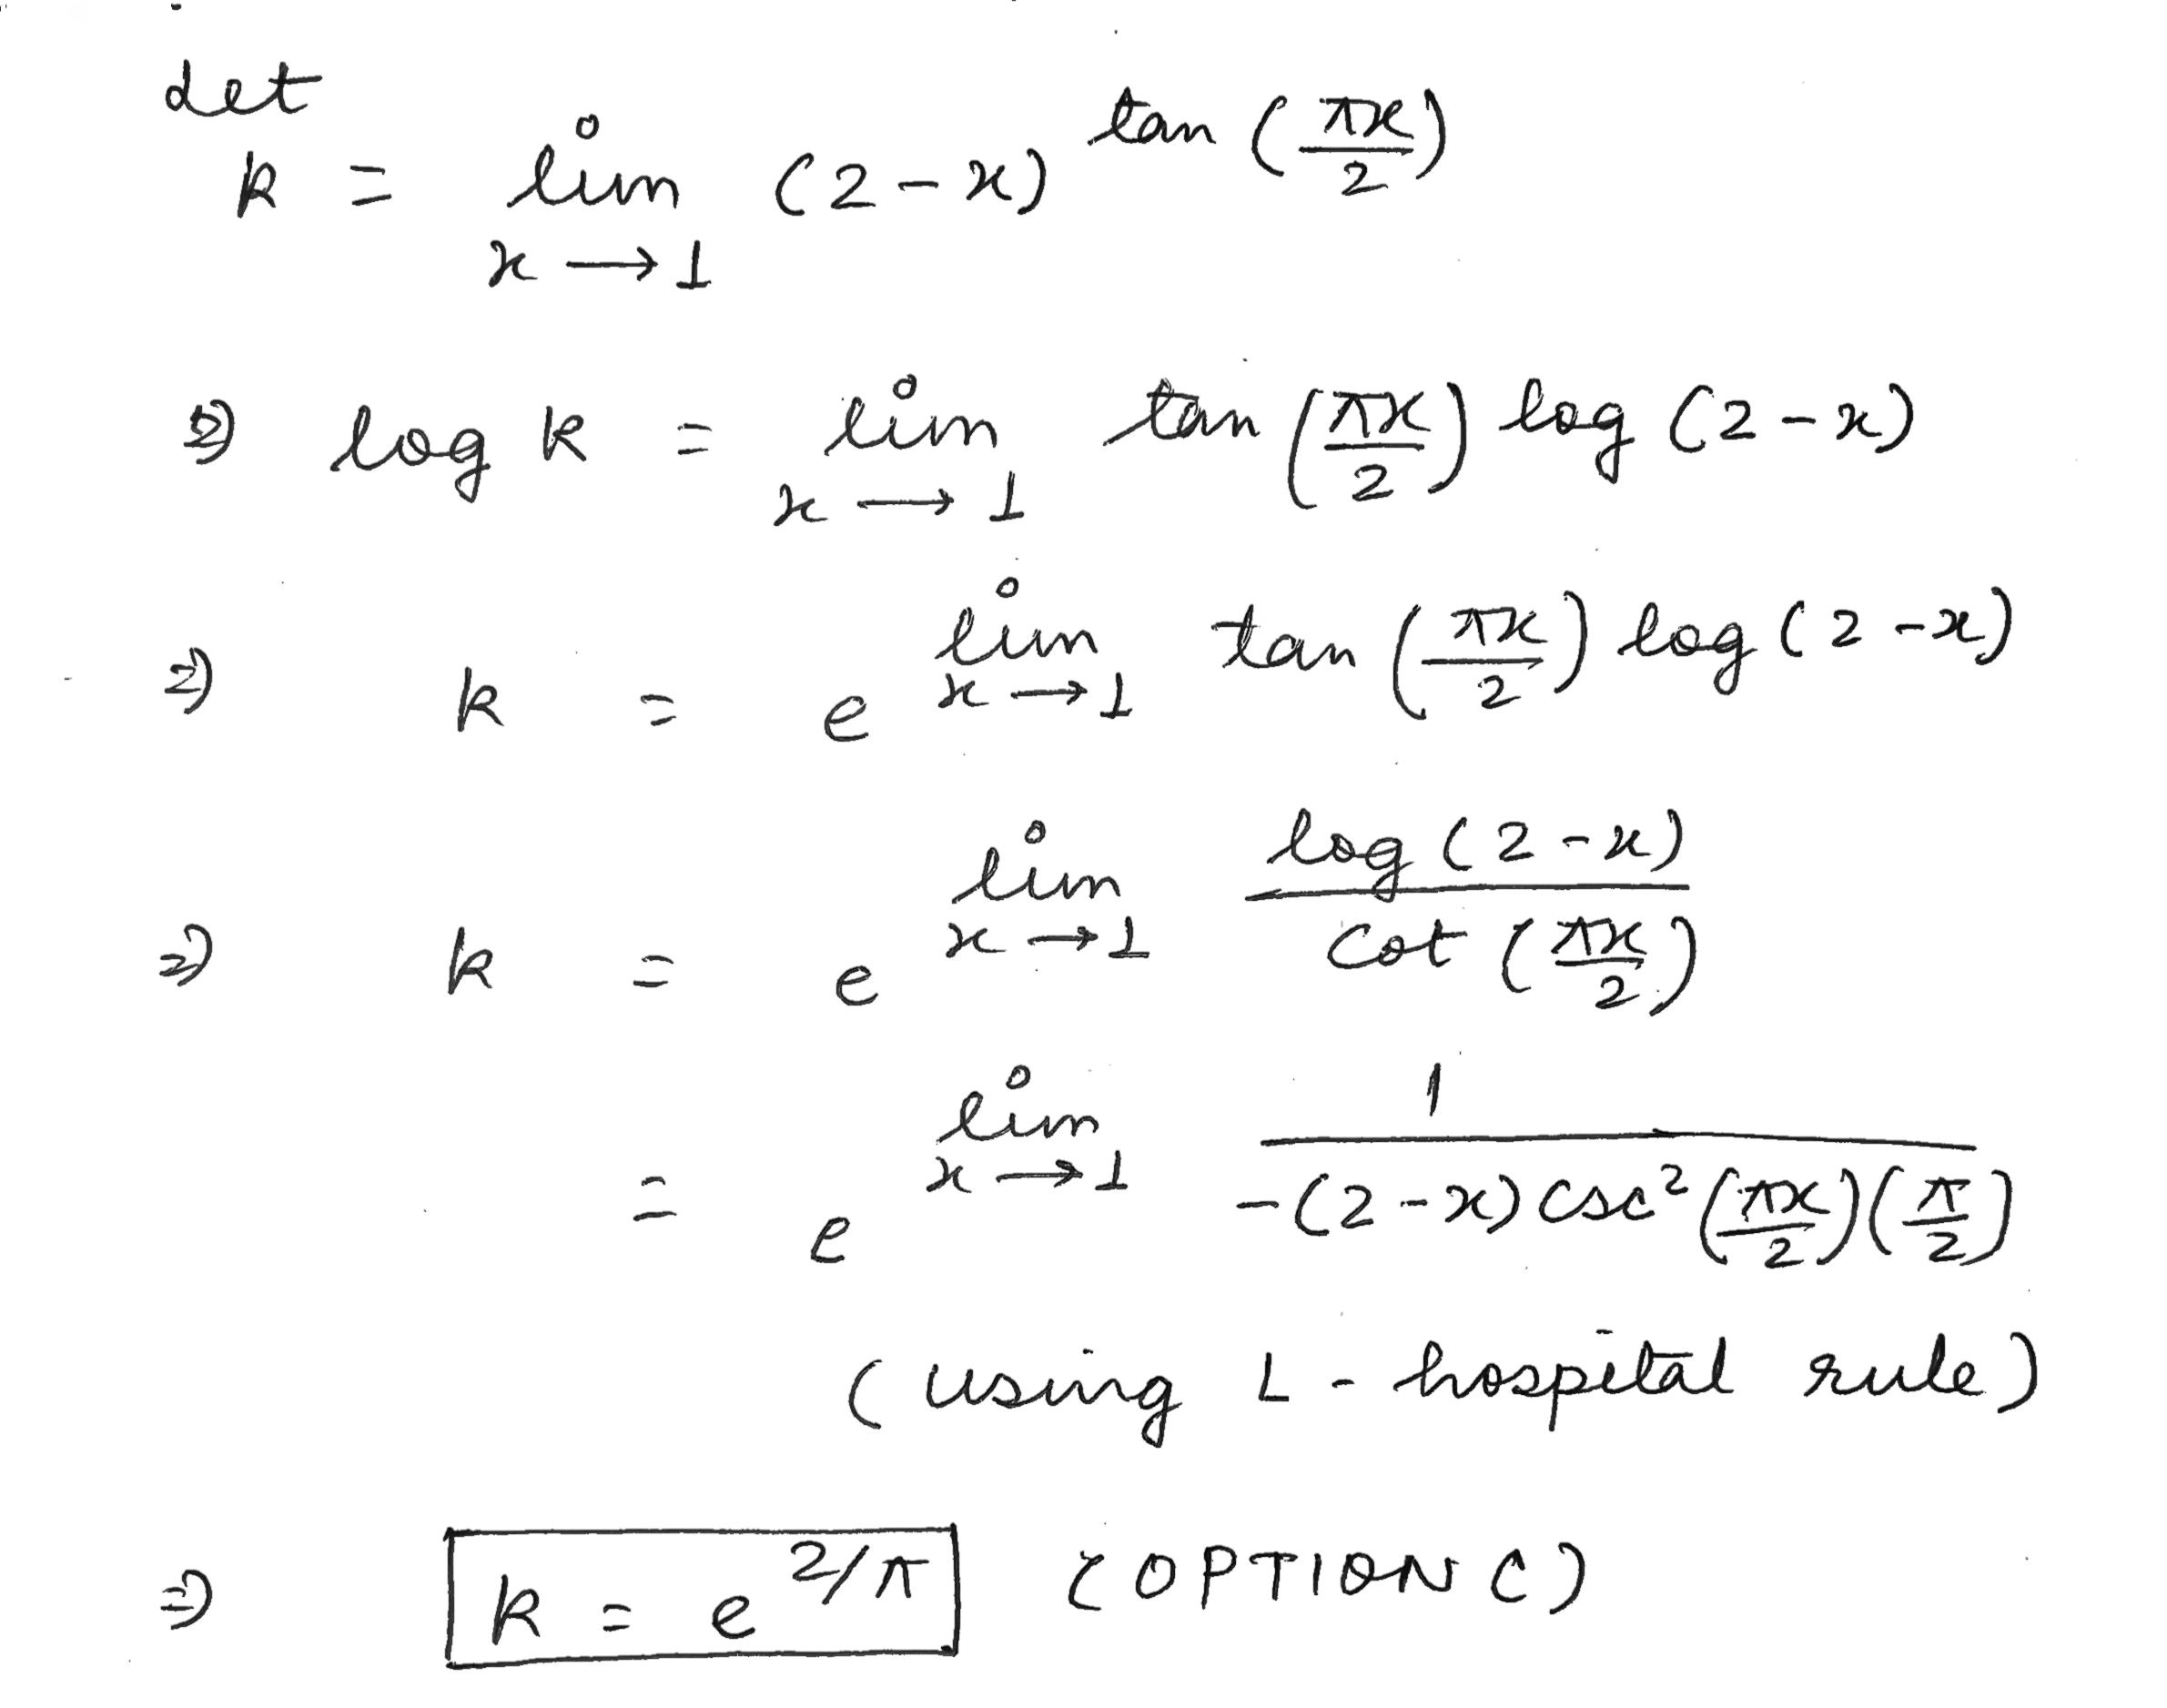 Let
k = lim x→1 (2-x)^tan(πx/2)
⇒ log k = lim x→1 tan(πx/2) log(2-x)
⇒ k = e^lim x→1 tan(πx/2) log(2-x)
⇒ k = e^lim x→1 log(2-x)/cot(πx/2)
= e^lim x→1 1/-(2-x)csc²(πx/2)(π/2)
(using L-hospital rule)
⇒ k = e^2/π (OPTION C)